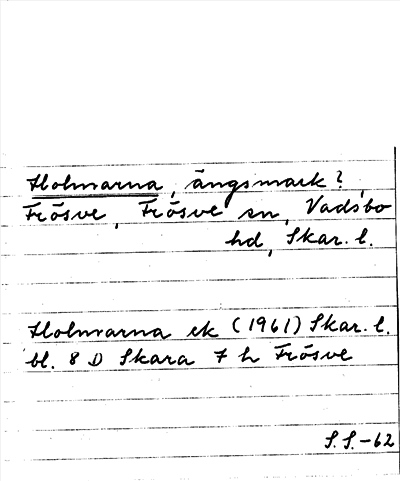 Holmarna, ängsmark?
Frösve, Frösve sn, Vadsbo
hd, Skar. l.
Holmarna ek (1961) Skar. l.
bl. 8 D Skara 7 h Frösve
S.S.-62